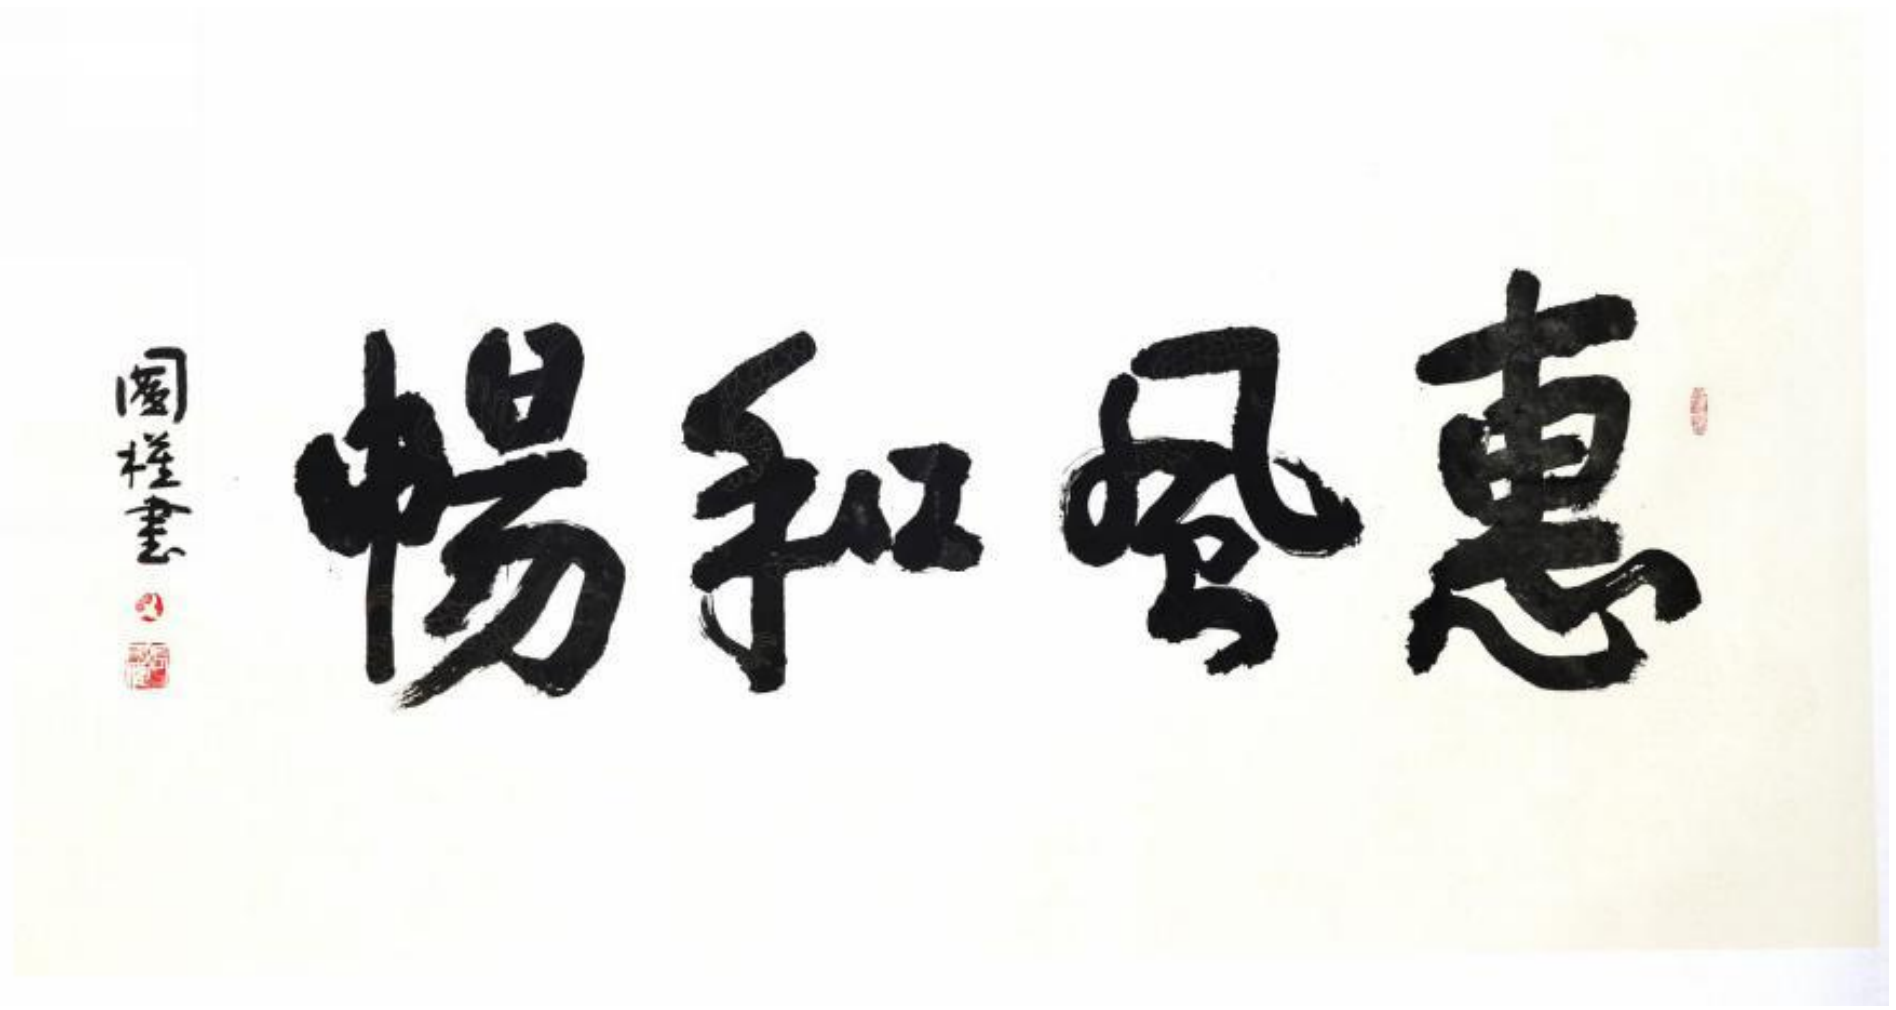 惠風和暢
國權書